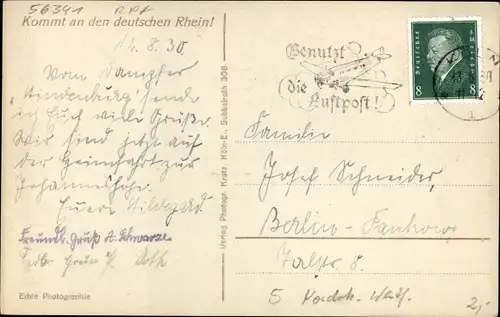 56341 RPF
Kommt an den deutschen Rhein!
12.8.30
Vom Dampfer
"Hindenburg" sende
ich Euch viele Grüße.
Wir sind jetzt auf
der Heimfahrt zur
Johanneshöhe.
Eure Hildegard
Freundl. Gruß A. Schwarze
Echte Photographie
Verlag Photogr. Kratz, Köln-E., Subbelrath 308
Benutzt
die
Luftpost!
DEUTSCHES REICH
8 8
Familie
Josef Schneider,
Berlin-Pankow
Talstr. 8.
2,-